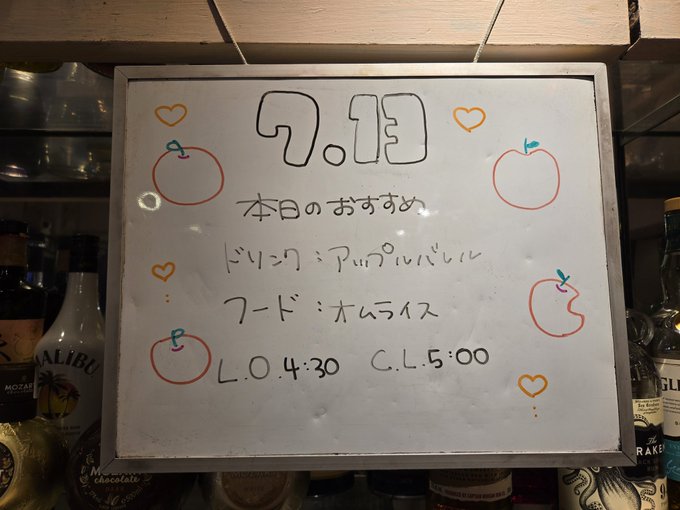 7.13
本日のおすすめ
ドリンク:アップルバレル
フード:オムライス
L.O.4:30 C.L.5:00
MALIBU
MOZART
chocolate
The
KRAKEN